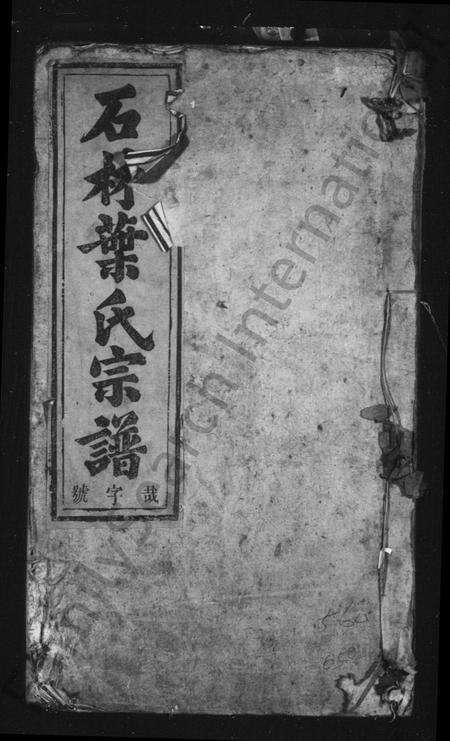 石林葉氏宗譜
哉字號
FamilySearch International